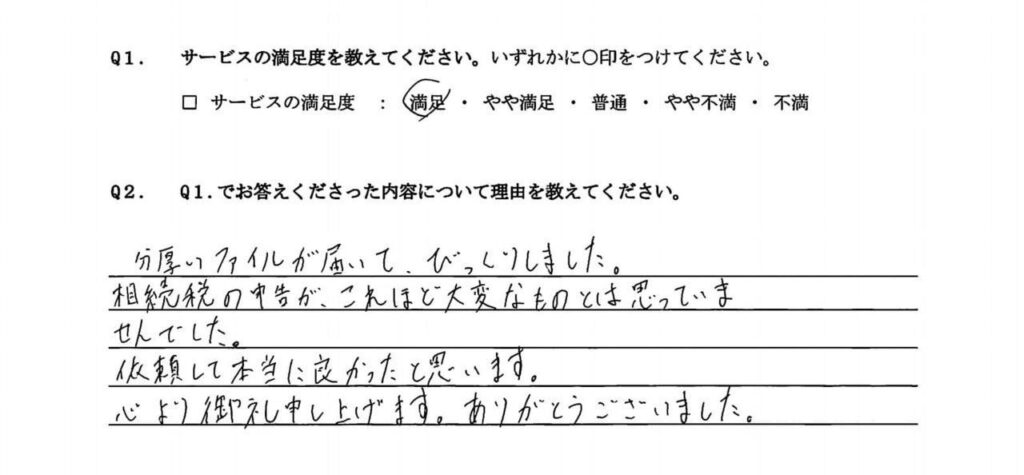 Q1. サービスの満足度を教えてください。いずれかに〇印をつけてください。
□ サービスの満足度 : 満足 ・ やや満足 ・ 普通 ・ やや不満 ・ 不満
Q2. Q1.でお答えくださった内容について理由を教えてください。
分厚いファイルが届いて、びっくりしました。
相続税の申告が、これほど大変なものとは思っていま
せんでした。
依頼して本当に良かったと思います。
心より御礼申し上げます。ありがとうございました。